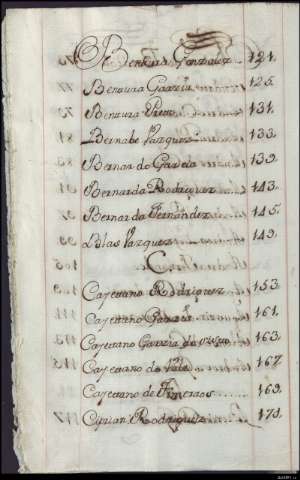 Bentura Gonzalez 121.
Benaura Garcia 125.
Benaura Prieto 131.
Bernabe Vazquez 133.
Bernardo Garcia 139.
Bernarda Rodriguez 143.
Bernarda Fernandez 145.
Blas Vazquez 149.
C
Cayetano Rodriguez 153.
Cayetano Garcia 161.
Cayetano Garcia de 163.
Cayetano de Vale 167.
Cayetano de 169.
Ciprian Rodriguez 173.